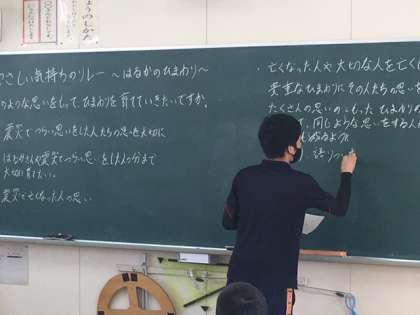 さしい気持ちのリレー ～はるかのひまわり～
のような思いをもって、ひまわりを育てていきたいですか。
震災でつらい思いをした人たちの思いを大切に
はるかさんや震災でつらい思いをした人の分まで
大切に育てたい。
震災で亡くなった人の思い
・亡くなった人や大切な人を亡く
貴重なひまわりにその人たちの思いを
たくさんの思いのこもったひまわりの
同じような思いをする人
ように
語りつ